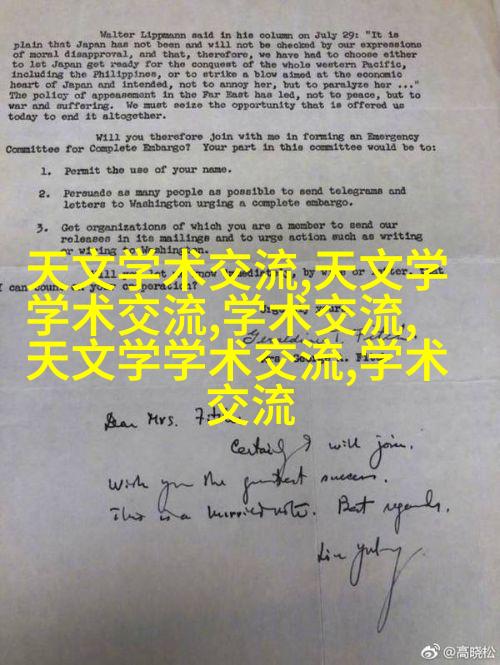 Walter Lippmann said in his column on July 29: "It is
plain that Japan has not been and will not be checked by our expressions
of moral disapproval, and that, therefore, we have had to choose either
to let Japan get ready for the conquest of the whole western Pacific,
including the Philippines, or to strike a blow aimed at the economic
heart of Japan and intended, not to annoy her, but to paralyze her ..."
The policy of appeasement in the Far East has led, not to peace, but to
war and suffering. We must seize the opportunity that is offered us
today to end it altogether.
Will you therefore join with me in forming an Emergency
Committee for Complete Embargo? Your part in this committee would be to:
1. Permit the use of your name.
2. Persuade as many people as possible to send telegrams and
letters to Washington urging a complete embargo.
3. Get organizations of which you are a member to send our
releases in its mailings and to urge action such as writing
or wiring Washington.
by
I can count your
天文学术交流,天文学
学术交流,学术交流,
天文学学术交流,学术
交流
Geraldine T. Fitch
Mrs. George A.
Dear Mrs. Fitch
Certainly I will join.
Wish you the greatest success.
This is a hurried note. Best regards.
Lin Yutang
@高晓松